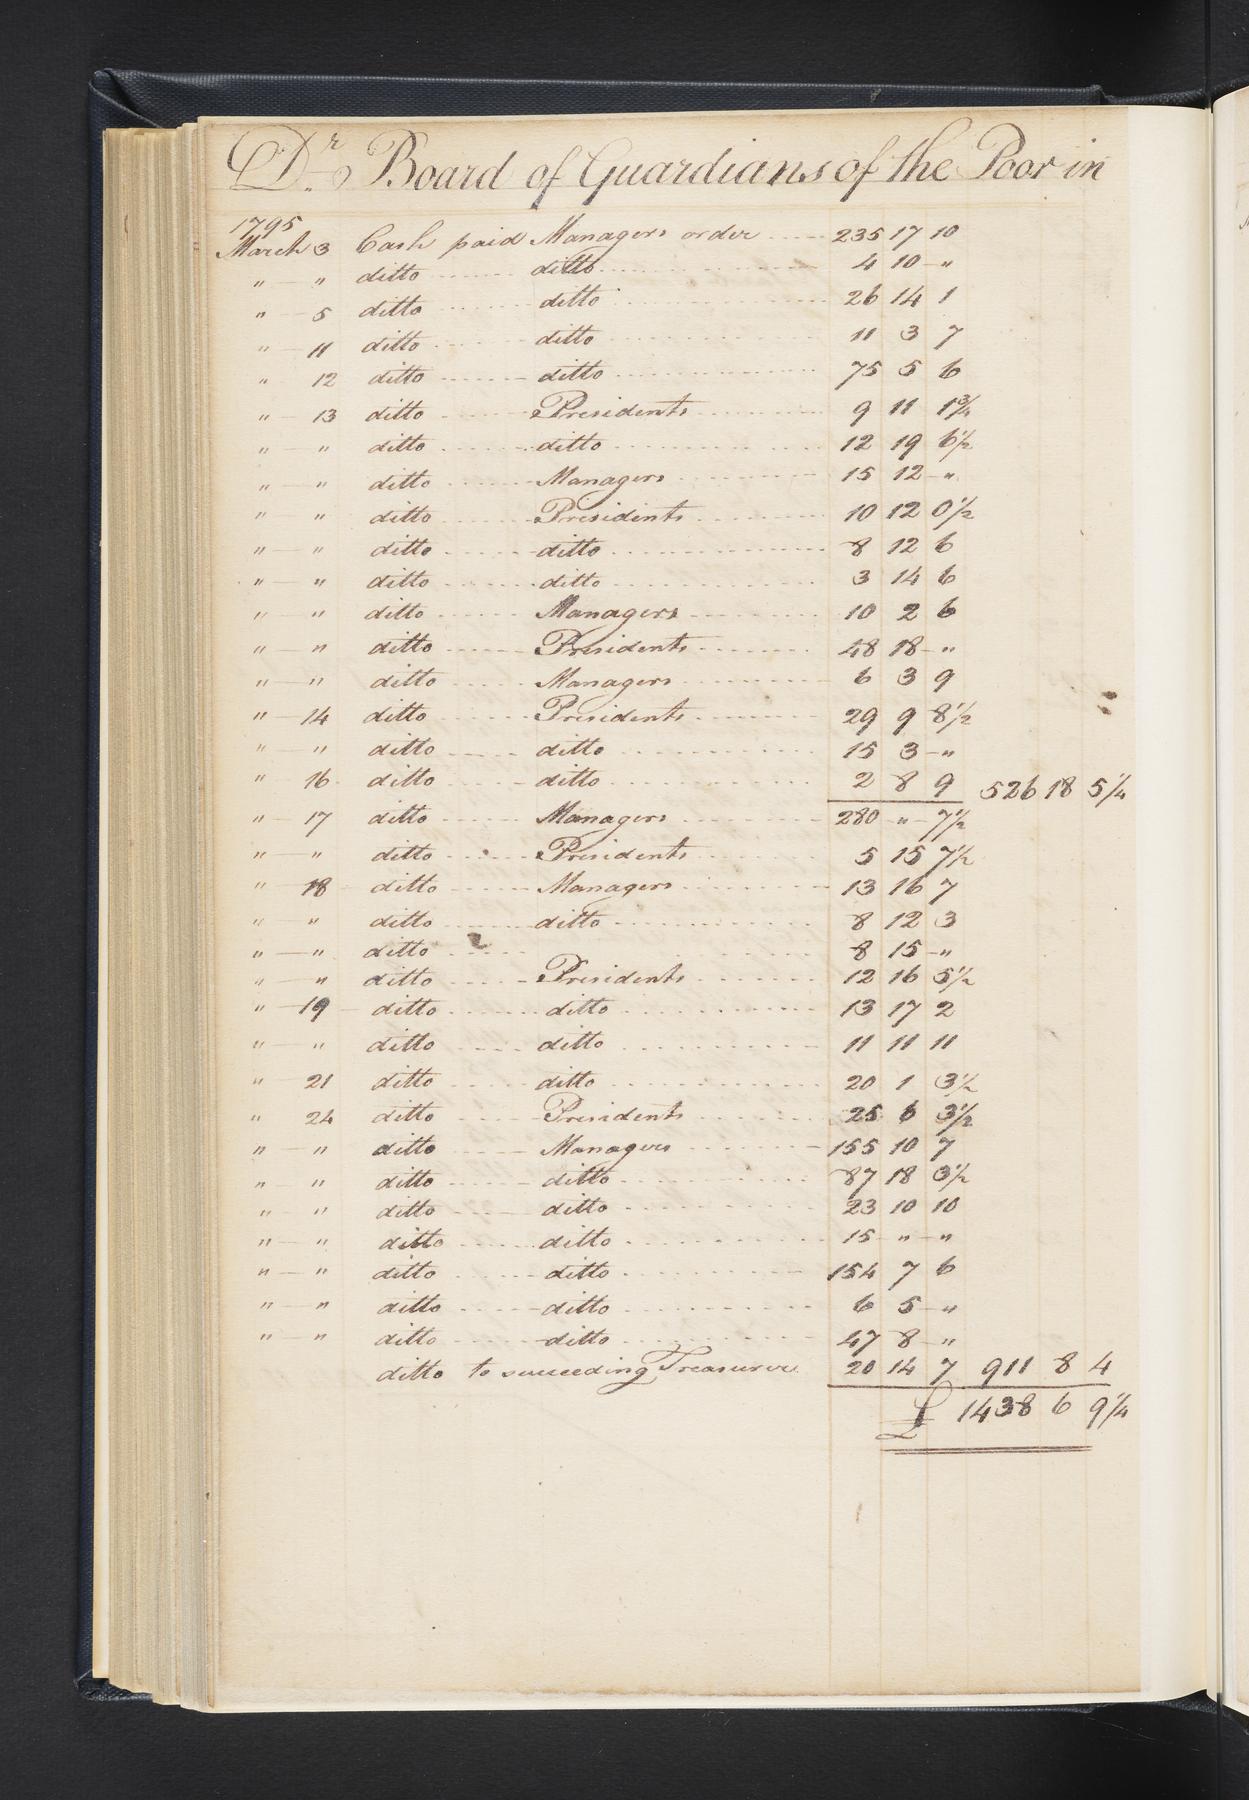 Dr. Board of Guardians of the Poor in
1795
March 3 Cash paid Managers order 235 17 10
" " ditto ditto 4 10 "
" 5 ditto ditto 26 14 1
" 11 ditto ditto 11 3 7
" 12 ditto ditto 75 5 6
" 13 ditto Presidents 9 11 1¾
" " ditto ditto 12 19 6½
" " ditto Managers 15 12 "
" " ditto Presidents 10 12 0½
" " ditto ditto 8 12 6
" " ditto ditto 3 14 6
" " ditto Managers 10 2 6
" " ditto Presidents 48 18 "
" " ditto Managers 6 3 9
" 14 ditto Presidents 29 9 8½
" " ditto ditto 15 3 "
" 16 ditto ditto 2 8 9 526 18 5¼
" 17 ditto Managers 280 " 7½
" " ditto Presidents 5 15 7½
" 18 ditto Managers 13 16 7
" " ditto ditto 8 12 3
" " ditto 8 15 "
" " ditto Presidents 12 16 5½
" 19 ditto ditto 13 17 2
" " ditto ditto 11 11 11
" 21 ditto ditto 20 1 3½
" 24 ditto Presidents 25 6 3½
" " ditto Managers 155 10 7
" " ditto ditto 87 18 3½
" " ditto ditto 23 10 10
" " ditto ditto 15 " "
" " ditto ditto 154 7 6
" " ditto ditto 6 5 "
" " ditto ditto 47 8 "
ditto to succeeding Treasurer 20 14 7 911 8 4
£ 1438 6 9¼